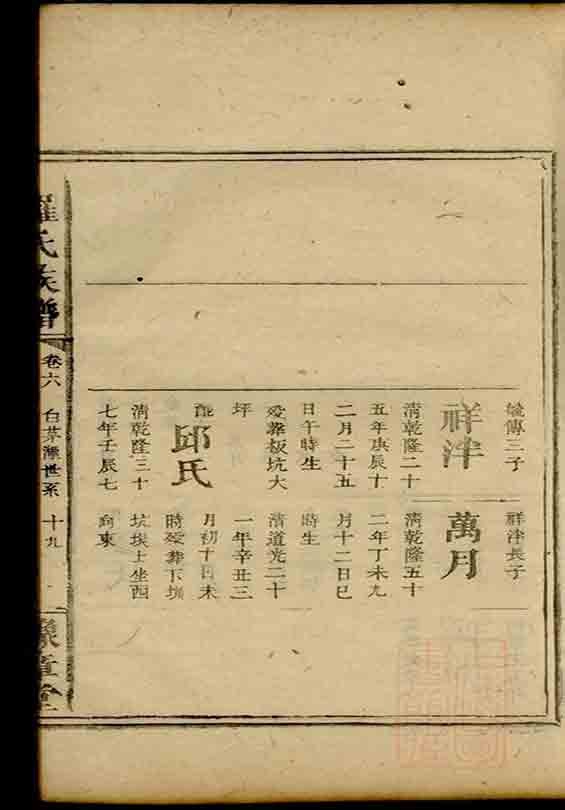 毓傳三子
祥泮
清乾隆二十
五年庚辰十
二月二十五
日午時生
歿葬板坑大
坪
配
邱氏
清乾隆三十
七年壬辰七
祥泮長子
萬月
清乾隆五十
二年丁未九
月十二日巳
時生
清道光二十
一年辛丑三
月初十日未
時歿葬下圳
坑墈上坐西
向東
羅氏族譜
卷六
白茅灘世系
十九
豫章堂